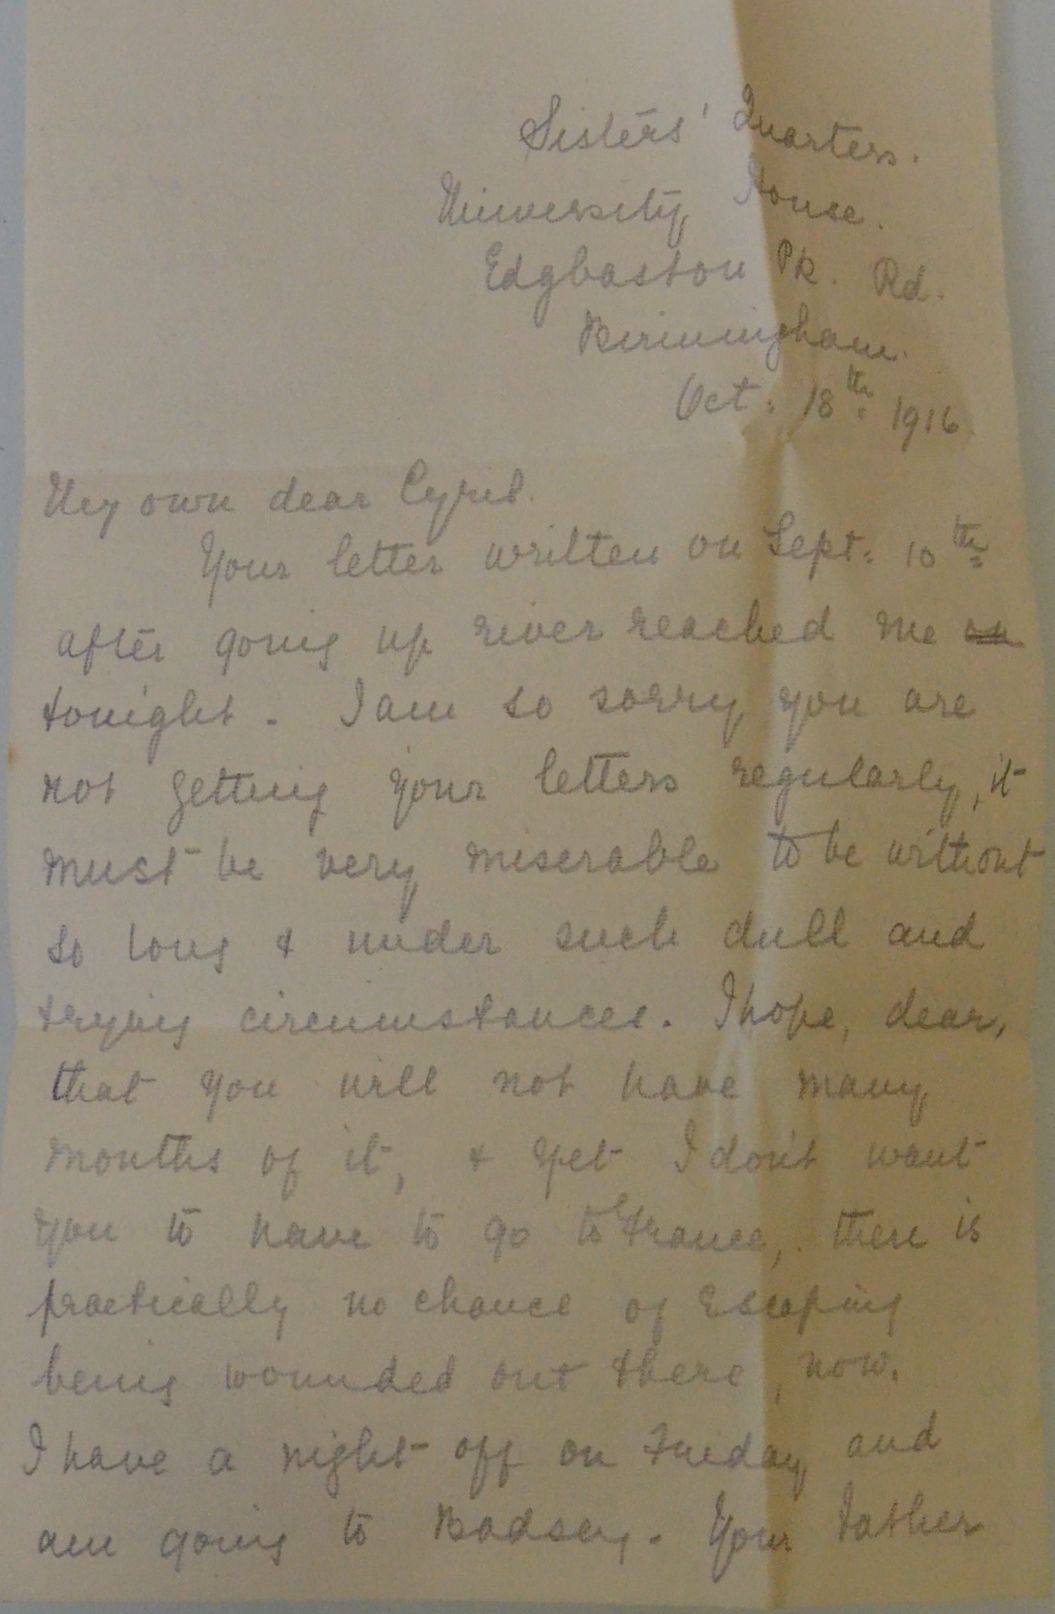 Sisters' Quarters.
University House.
Edgbaston Pk. Rd.
Birmingham.
Oct. 18th 1916.
My own dear Cyril.
Your letter written on Sept. 10th
after going up river reached me
tonight. I am so sorry you are
not getting your letters regularly, it
must be very miserable to be without
so long & under such dull and
trying circumstances. I hope, dear,
that you will not have many
months of it, & yet I don't want
you to have to go to France, there is
practically no chance of escaping
being wounded out there, now.
I have a night off on Friday and
am going to Badsey. Your Father